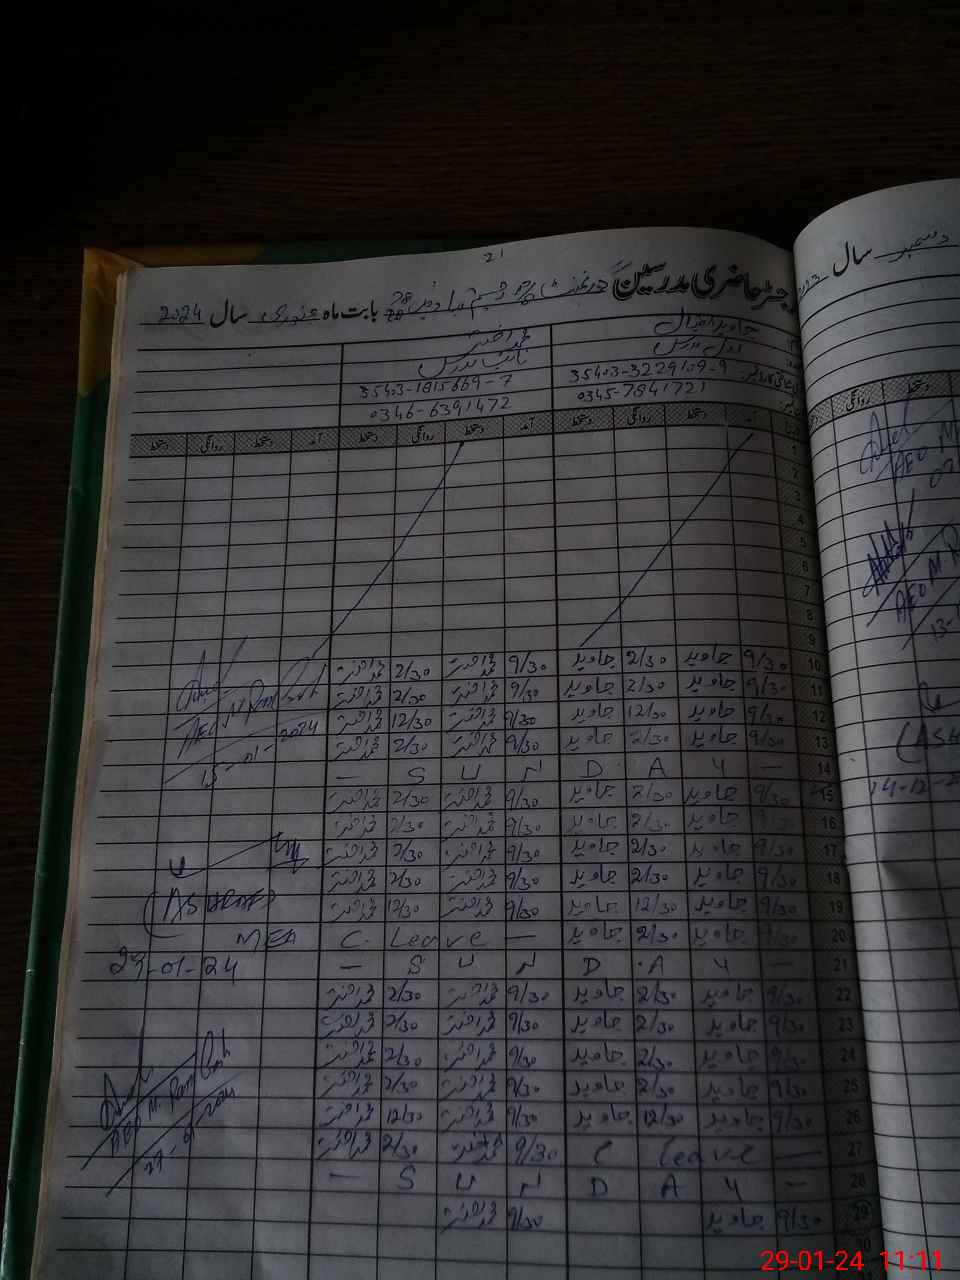 21
رجسٹر حاضری مدرسین گورنمنٹ بابت ماہ جنوری سال 2024
جاوید اقبال محمد اختر
اول مدرس نائب مدرس
35403-3229109-9 35403-1815669-7
0345-7841721 0346-6391472
آمد دستخط روانگی دستخط آمد دستخط روانگی دستخط آمد دستخط روانگی دستخط
1
2
3
4
5
6
7
8
9
10 9/30 جاوید 2/30 جاوید 9/30 محمد اختر 2/30 محمد اختر
11 9/30 جاوید 2/30 جاوید 9/30 محمد اختر 2/30 محمد اختر
12 9/30 جاوید 12/30 جاوید 9/30 محمد اختر 12/30 محمد اختر
13 9/30 جاوید 2/30 جاوید 9/30 محمد اختر 2/30 محمد اختر
14 — S U N D A Y —
15 9/30 جاوید 2/30 جاوید 9/30 محمد اختر 2/30 محمد اختر
16 9/30 جاوید 2/30 جاوید 9/30 محمد اختر 2/30 محمد اختر
17 9/30 جاوید 2/30 جاوید 9/30 محمد اختر 2/30 محمد اختر
18 9/30 جاوید 2/30 جاوید 9/30 محمد اختر 2/30 محمد اختر
19 9/30 جاوید 12/30 جاوید 9/30 محمد اختر 12/30 محمد اختر
20 9/30 جاوید 2/30 جاوید C. Leave —
21 — S U N D A Y —
22 9/30 جاوید 2/30 جاوید 9/30 محمد اختر 2/30 محمد اختر
23 9/30 جاوید 2/30 جاوید 9/30 محمد اختر 2/30 محمد اختر
24 9/30 جاوید 2/30 جاوید 9/30 محمد اختر 2/30 محمد اختر
25 9/30 جاوید 2/30 جاوید 9/30 محمد اختر 2/30 محمد اختر
26 9/30 جاوید 12/30 جاوید 9/30 محمد اختر 12/30 محمد اختر
27 C leave — 9/30 محمد اختر 2/30 محمد اختر
28 — S U N D A Y —
29 9/30 جاوید 9/30 محمد اختر
30
AEO M.
15-01-2024
(ASHRAF)
MEA
27-01-24
AEO M.
27-01-2024
دسمبر سال
دستخط روانگی
AEO M
AEO M. R
13-
(ASH
14-12-2
29-01-24 11:11